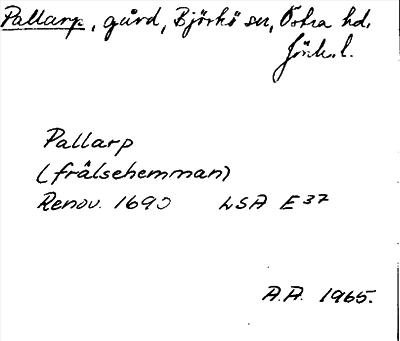 Pallarp, gård, Björkö sn, Östra hd,
Jönk. l.
Pallarp
(frälsehemman)
Renov. 1690 LSA E 37
A.A. 1965.